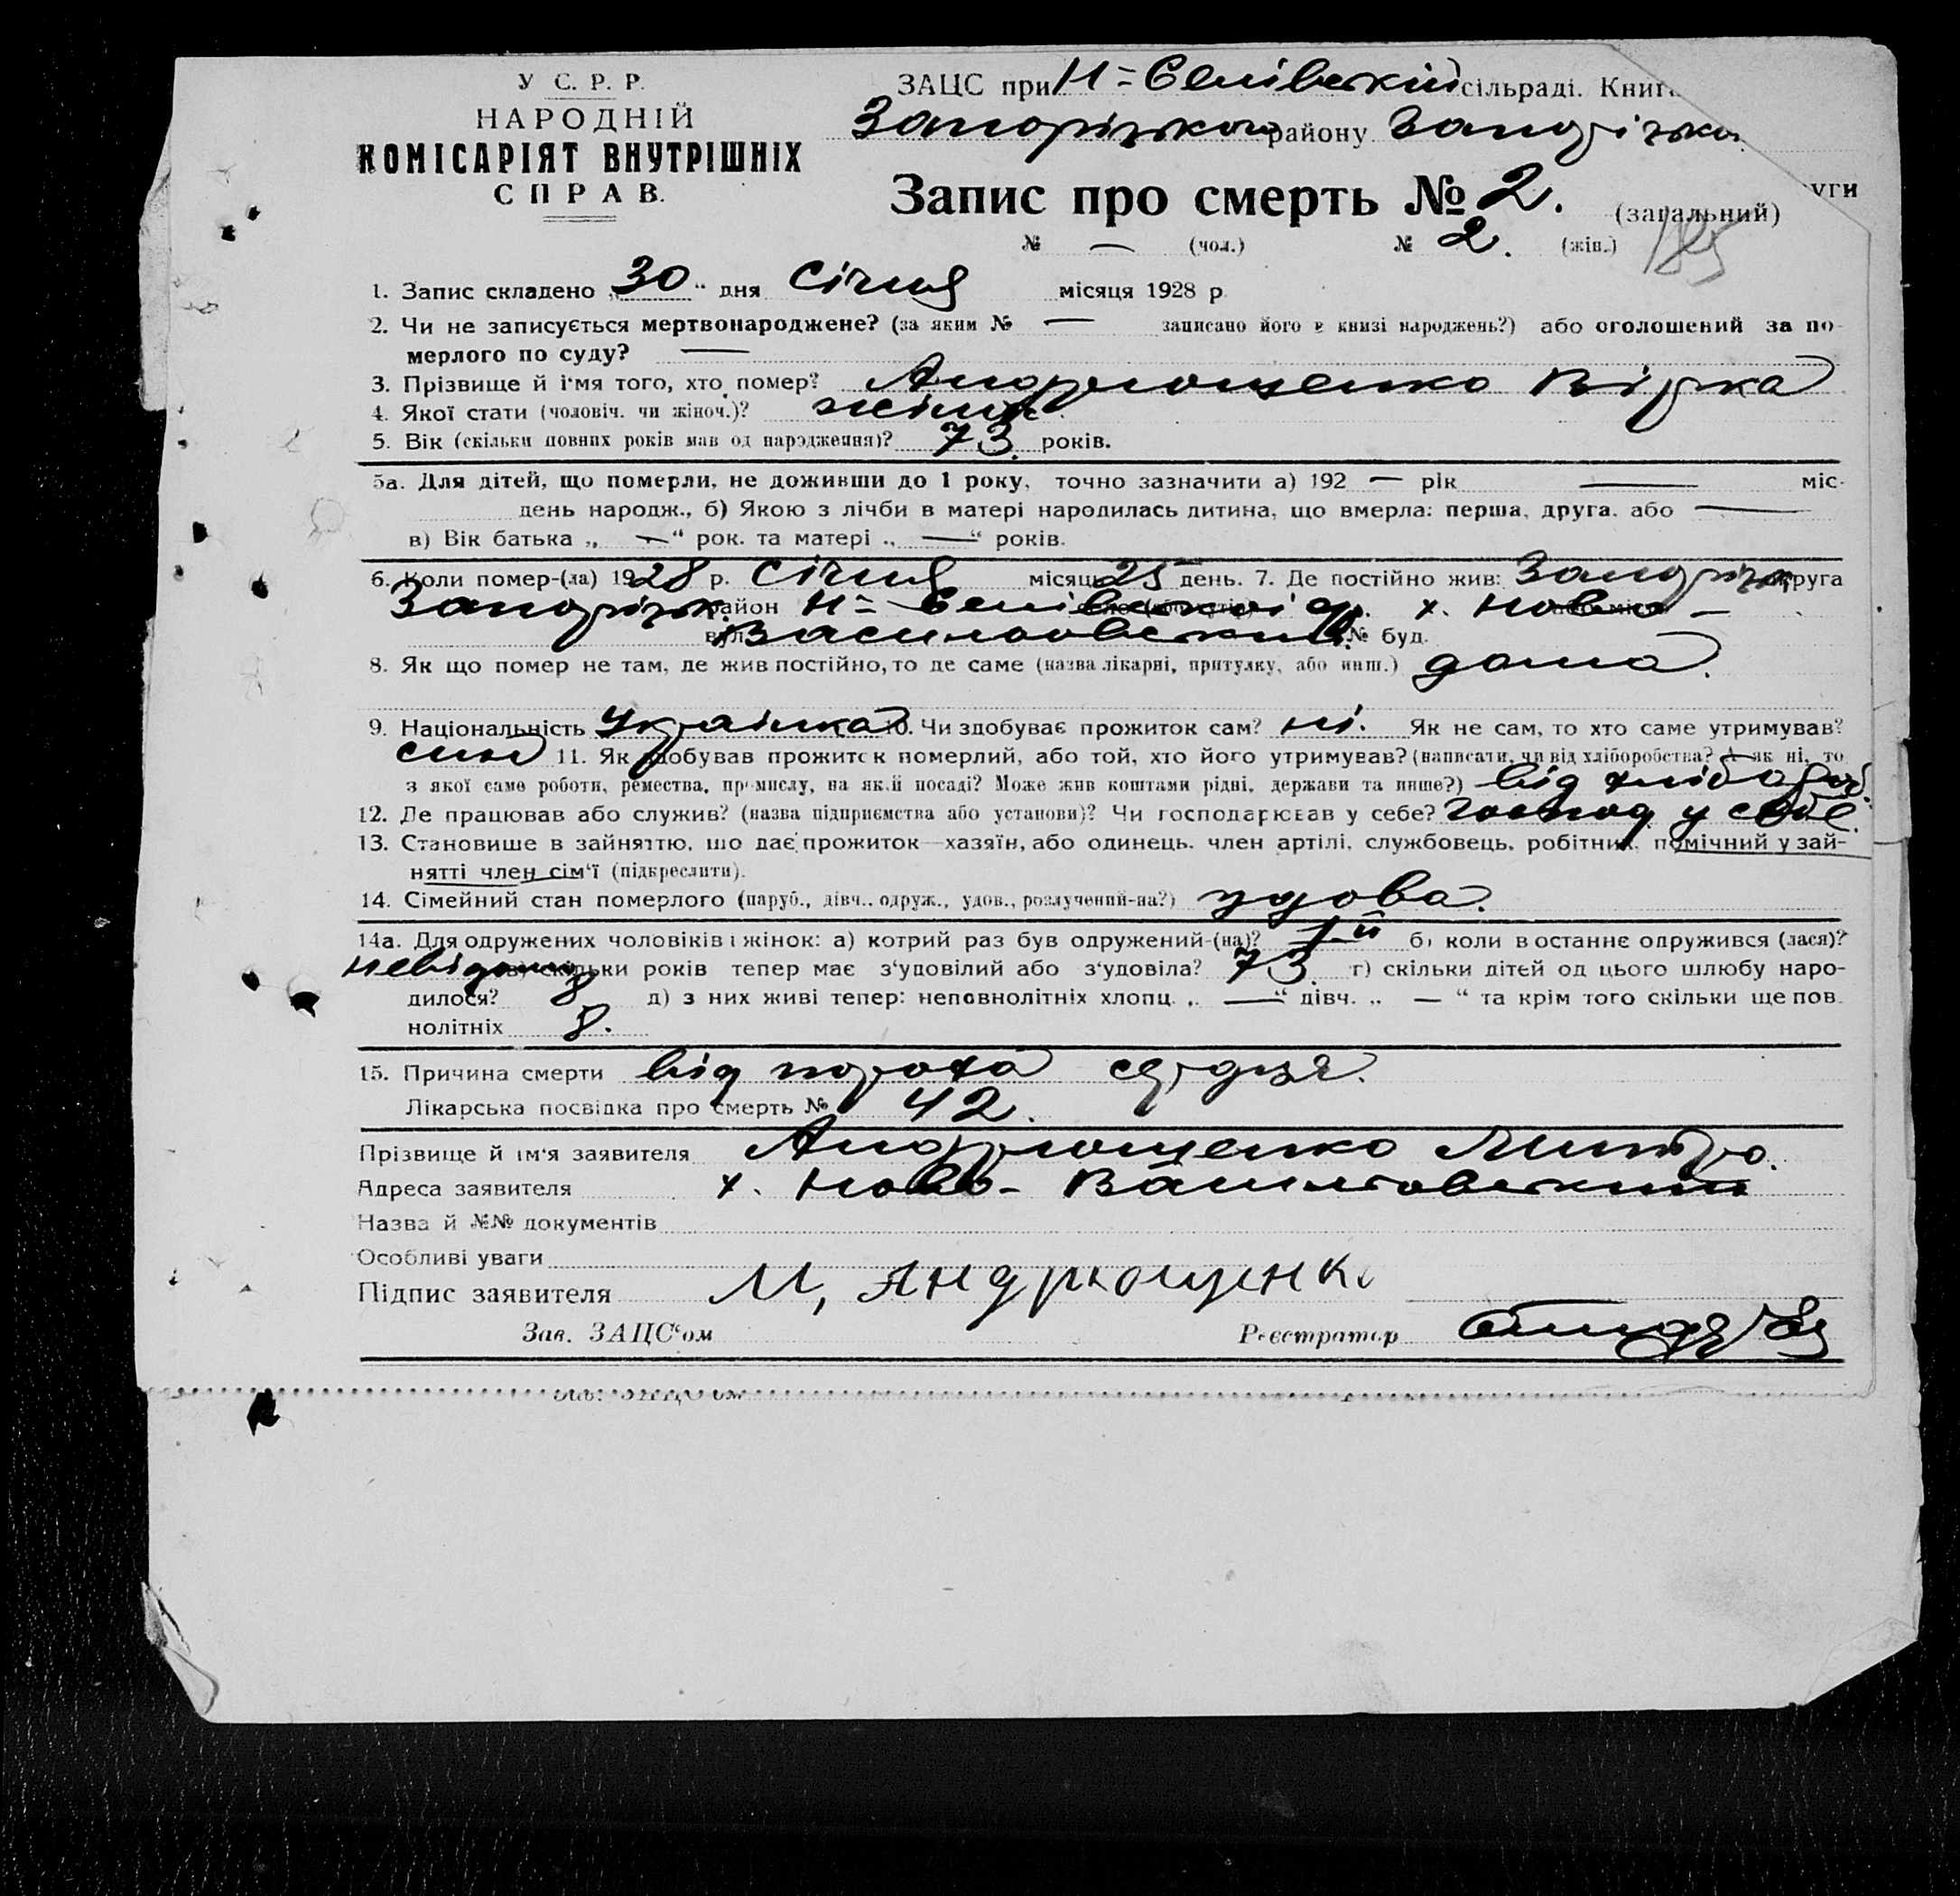 У С. Р. Р.
НАРОДНІЙ
КОМІСАРІЯТ ВНУТРІШНІХ
СПРАВ.
ЗАЦС при Н=Єлівській сільраді. Книга
Запорізького району Запорізької
уги
Запис про смерть № 2. (загальний)
№ — (чол.) № 2. (жін.)
185
1. Запис складено „30" дня Січня місяця 1928 р
2. Чи не записується мертвонароджене? (за яким № — записано його в книзі народжень?) або оголошений за по-
мерлого по суду? —
3. Прізвище й і'мя того, хто помер? Андрющенко Вірка
4. Якої стати (чоловіч. чи жіноч.)? жіноч.
5. Вік (скільки повних років мав од народження)? 73 років.
5а. Для дітей, що померли, не доживши до 1 року, точно зазначити а) 192 — рік — міс-
день народж., б) Якою з лічби в матері народилась дитина, що вмерла: перша, друга. або —
в) Вік батька „ — " рок. та матері „ — " років.
6. Коли помер-(ла) 1928 р. Січня місяць 25 день. 7. Де постійно жив: Запоріжк округа
Запорізьк. район Н=Єлівської с/р. х. Ново-
вул. Васильовський. № буд.
8. Як що помер не там, де жив постійно, то де саме (назва лікарні, притулку, або инш.) дома.
9. Національність Українка 10. Чи здобуває прожиток сам? ні. Як не сам, то хто саме утримував?
син 11. Як здобував прожиток померлий, або той, хто його утримував? (написати, чи від хліборобства? А як ні, то
з якої саме роботи, ремества, промислу, на якій посаді? Може жив коштами рідні, держави та инше?) від хлібороб.
12. Де працював або служив? (назва підприємства або установи)? Чи господарював у себе? господ у себе.
13. Становише в зайняттю, що дає прожиток—хазяїн, або одинець. член артілі, службовець, робітник, помічний у зай-
нятті член сім'ї (підкреслити).
14. Сімейний стан померлого (паруб., дівч., одруж., удов., розлучений-на?) удова.
14а. Для одружених чоловіків і жінок: а) котрий раз був одружений-(на)? 1-й б) коли в останнє одружився (лася)?
невідомо в) скільки років тепер має з'удовілий або з'удовіла? 73 г) скільки дітей од цього шлюбу наро-
дилося? 8 д) з них живі тепер: неповнолітніх хлопц. „ — " дівч. „ — " та крім того скільки ще пов.
нолітніх 8.
15. Причина смерти від порока сердця.
Лікарська посвідка про смерть № 42.
Прізвище й ім'я заявителя Андрющенко Митро.
Адреса заявителя х. Ново-Васильовський
Назва й №№ документів
Особливі уваги
Підпис заявителя М, Андрющенко
Зав. ЗАЦС'ом Реєстратор